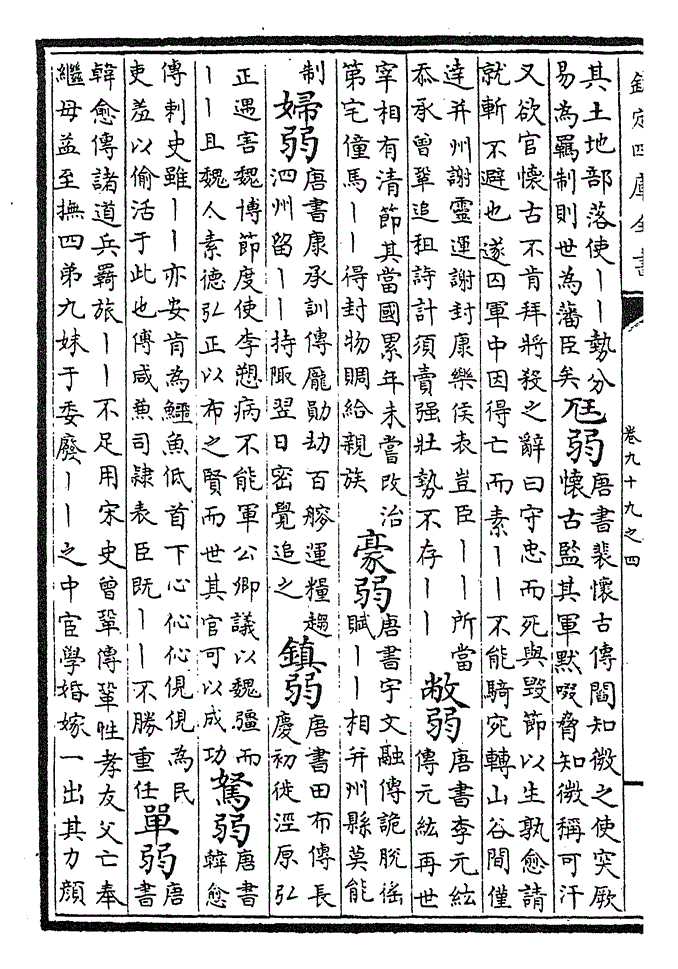 欽定四庫全書
卷九十九之四
其土地部落使丨丨勢分
易為羈制則世為藩臣矣
尫弱
唐書裴懷古傳閻知微之使突厥
懷古監其軍默啜脅知微稱可汗
又欲官懷古不肯拜將殺之辭曰守忠而死與毀節以生孰愈請
就斬不避也遂囚軍中因得亡而素丨丨不能騎宛轉山谷間僅
達并州謝靈運謝封康樂侯表豈臣丨丨所當
忝承曾鞏追租詩計須責强壯勢不存丨丨
敝弱
唐書李元紘
傳元紘再世
宰相有清節其當國累年未嘗改治
第宅僮馬丨丨得封物賙給親族
豪弱
唐書宇文融傳詭脫徭
賦丨丨相并州縣莫能
制
婦弱
唐書康承訓傳龐勛劫百艘運糧趨
泗州留丨丨持陬翌日密覺追之
鎮弱
唐書田布傳長
慶初徙涇原弘
正遇害魏博節度使李愬病不能軍公卿議以魏彊而
丨丨且魏人素德弘正以布之賢而世其官可以成功
駑弱
唐書
韓愈
傳刺史雖丨丨亦安肯為鱷魚低首下心伈伈俔俔為民
吏羞以偷活于此也傅咸兼司隸表臣既丨丨不勝重任
單弱
唐
書
韓愈傳諸道兵羇旅丨丨不足用宋史曾鞏傳鞏性孝友父亡奉
繼母益至撫四弟九妹于委廢丨丨之中宦學婚嫁一出其力顔